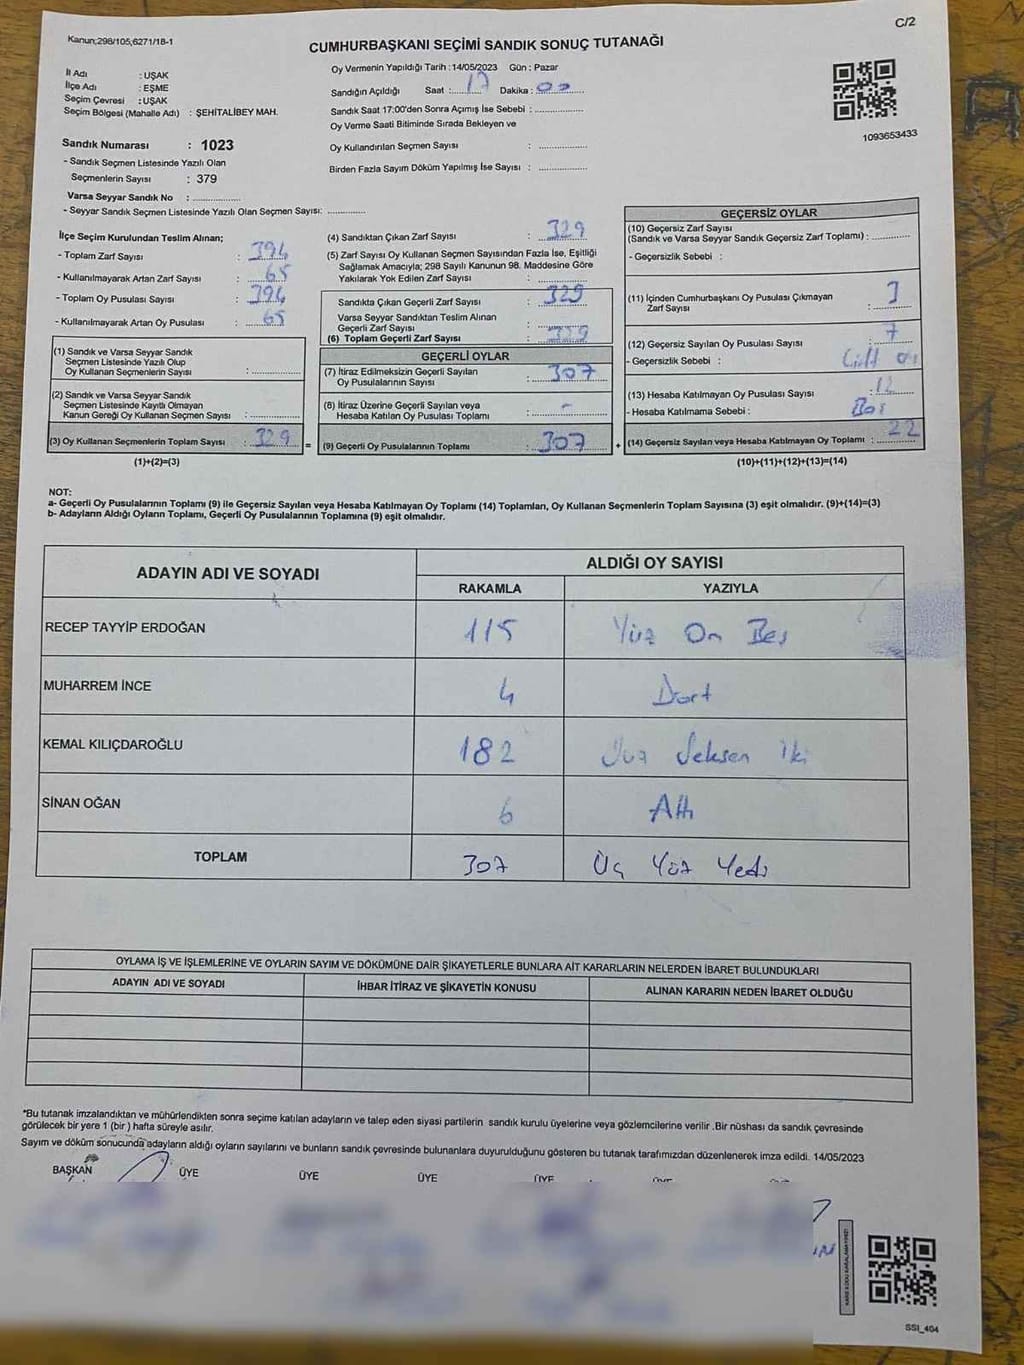 C/2
Kanun;298/105,6271/18-1
CUMHURBAŞKANI SEÇİMİ SANDIK SONUÇ TUTANAĞI
İl Adı : UŞAK
İlçe Adı : EŞME
Seçim Çevresi : UŞAK
Seçim Bölgesi (Mahalle Adı) : ŞEHİTALİBEY MAH.
Oy Vermenin Yapıldığı Tarih :14/05/2023 Gün : Pazar
Sandığın Açıldığı Saat :17 Dakika :00
Sandık Saat 17:00'den Sonra Açımış İse Sebebi :
Oy Verme Saati Bitiminde Sırada Bekleyen ve
Oy Kullandırılan Seçmen Sayısı :
Birden Fazla Sayım Döküm Yapılmış İse Sayısı :
1093653433
Sandık Numarası : 1023
- Sandık Seçmen Listesinde Yazılı Olan
Seçmenlerin Sayısı : 379
Varsa Seyyar Sandık No :
- Seyyar Sandık Seçmen Listesinde Yazılı Olan Seçmen Sayısı:
İlçe Seçim Kurulundan Teslim Alınan;
- Toplam Zarf Sayısı : 394
- Kullanılmayarak Artan Zarf Sayısı : 65
- Toplam Oy Pusulası Sayısı : 394
- Kullanılmayarak Artan Oy Pusulası : 65
(1) Sandık ve Varsa Seyyar Sandık
Seçmen Listesinde Yazılı Olup
Oy Kullanan Seçmenlerin Sayısı :
(2) Sandık ve Varsa Seyyar Sandık
Seçmen Listesinde Kayıtlı Olmayan
Kanun Gereği Oy Kullanan Seçmen Sayısı :
(3) Oy Kullanan Seçmenlerin Toplam Sayısı : 329
(1)+(2)=(3)
(4) Sandıktan Çıkan Zarf Sayısı : 329
(5) Zarf Sayısı Oy Kullanan Seçmen Sayısından Fazla İse, Eşitliği
Sağlamak Amacıyla; 298 Sayılı Kanunun 98. Maddesine Göre
Yakılarak Yok Edilen Zarf Sayısı :
Sandıkta Çıkan Geçerli Zarf Sayısı : 329
Varsa Seyyar Sandıktan Teslim Alınan
Geçerli Zarf Sayısı :
(6) Toplam Geçerli Zarf Sayısı : 329
GEÇERLİ OYLAR
(7) İtiraz Edilmeksizin Geçerli Sayılan
Oy Pusulalarının Sayısı : 307
(8) İtiraz Üzerine Geçerli Sayılan veya
Hesaba Katılan Oy Pusulası Toplamı : -
= (9) Geçerli Oy Pusulalarının Toplamı : 307
GEÇERSİZ OYLAR
(10) Geçersiz Zarf Sayısı
(Sandık ve Varsa Seyyar Sandık Geçersiz Zarf Toplamı) :
- Geçersizlik Sebebi :
(11) İçinden Cumhurbaşkanı Oy Pusulası Çıkmayan
Zarf Sayısı : 3
(12) Geçersiz Sayılan Oy Pusulası Sayısı : 7
- Geçersizlik Sebebi : Çift oy
(13) Hesaba Katılmayan Oy Pusulası Sayısı : 12
- Hesaba Katılmama Sebebi : Boş
+ (14) Geçersiz Sayılan veya Hesaba Katılmayan Oy Toplamı : 22
(10)+(11)+(12)+(13)=(14)
NOT:
a- Geçerli Oy Pusulalarının Toplamı (9) ile Geçersiz Sayılan veya Hesaba Katılmayan Oy Toplamı (14) Toplamları, Oy Kullanan Seçmenlerin Toplam Sayısına (3) eşit olmalıdır. (9)+(14)=(3)
b- Adayların Aldığı Oyların Toplamı, Geçerli Oy Pusulalarının Toplamına (9) eşit olmalıdır.
ADAYIN ADI VE SOYADI
ALDIĞI OY SAYISI
RAKAMLA YAZIYLA
RECEP TAYYİP ERDOĞAN 115 Yüz On Beş
MUHARREM İNCE 4 Dört
KEMAL KILIÇDAROĞLU 182 Yüz Seksen İki
SİNAN OĞAN 6 Altı
TOPLAM 307 Üç Yüz Yedi
OYLAMA İŞ VE İŞLEMLERİNE VE OYLARIN SAYIM VE DÖKÜMÜNE DAİR ŞİKAYETLERLE BUNLARA AİT KARARLARIN NELERDEN İBARET BULUNDUKLARI
ADAYIN ADI VE SOYADI İHBAR İTİRAZ VE ŞİKAYETİN KONUSU ALINAN KARARIN NEDEN İBARET OLDUĞU
*Bu tutanak imzalandıktan ve mühürlendikten sonra seçime katılan adayların ve talep eden siyasi partilerin sandık kurulu üyelerine veya gözlemcilerine verilir .Bir nüshası da sandık çevresinde
görülecek bir yere 1 (bir ) hafta süreyle asılır.
Sayım ve döküm sonucunda adayların aldığı oyların sayılarını ve bunların sandık çevresinde bulunanlara duyurulduğunu gösteren bu tutanak tarafımızdan düzenlenerek imza edildi. 14/05/2023
BAŞKAN ÜYE ÜYE ÜYE ÜYE
SSI_404